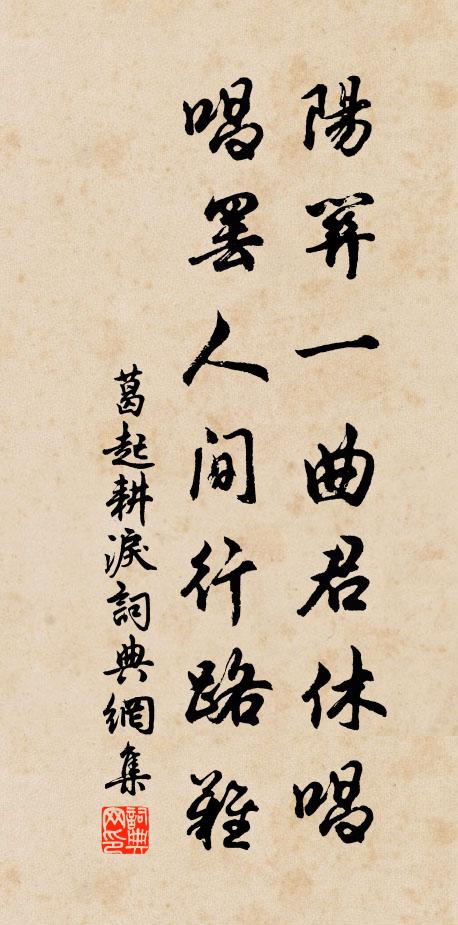 陽關一曲君休唱
唱罷人間行路難
葛起耕淚詞典網集
詞典網印